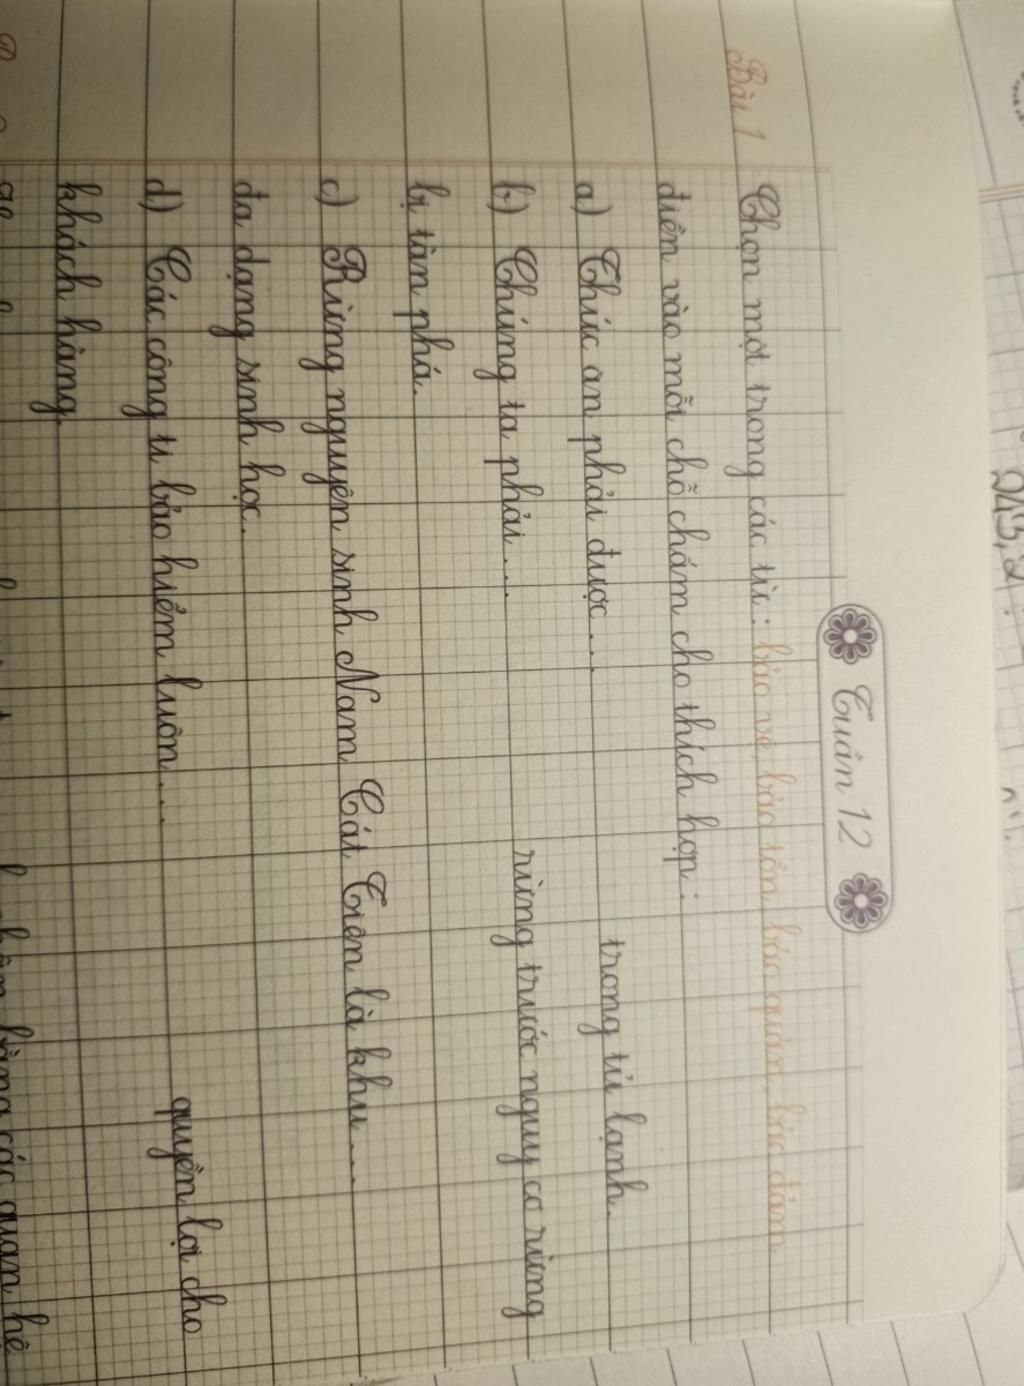 Tuần 12
Bài 1 Chọn một trong các từ: bảo vệ, bảo tồn, bảo quản, bảo đảm
điền vào mỗi chỗ chấm cho thích hợp:
a) Thức ăn phải được... trong tủ lạnh.
b) Chúng ta phải... rừng trước nguy cơ rừng
bị tàn phá.
c) Rừng nguyên sinh Nam Cát Tiên là khu...
đa dạng sinh học.
d) Các công ti bảo hiểm luôn... quyền lợi cho
khách hàng.
bằng các quan hệ